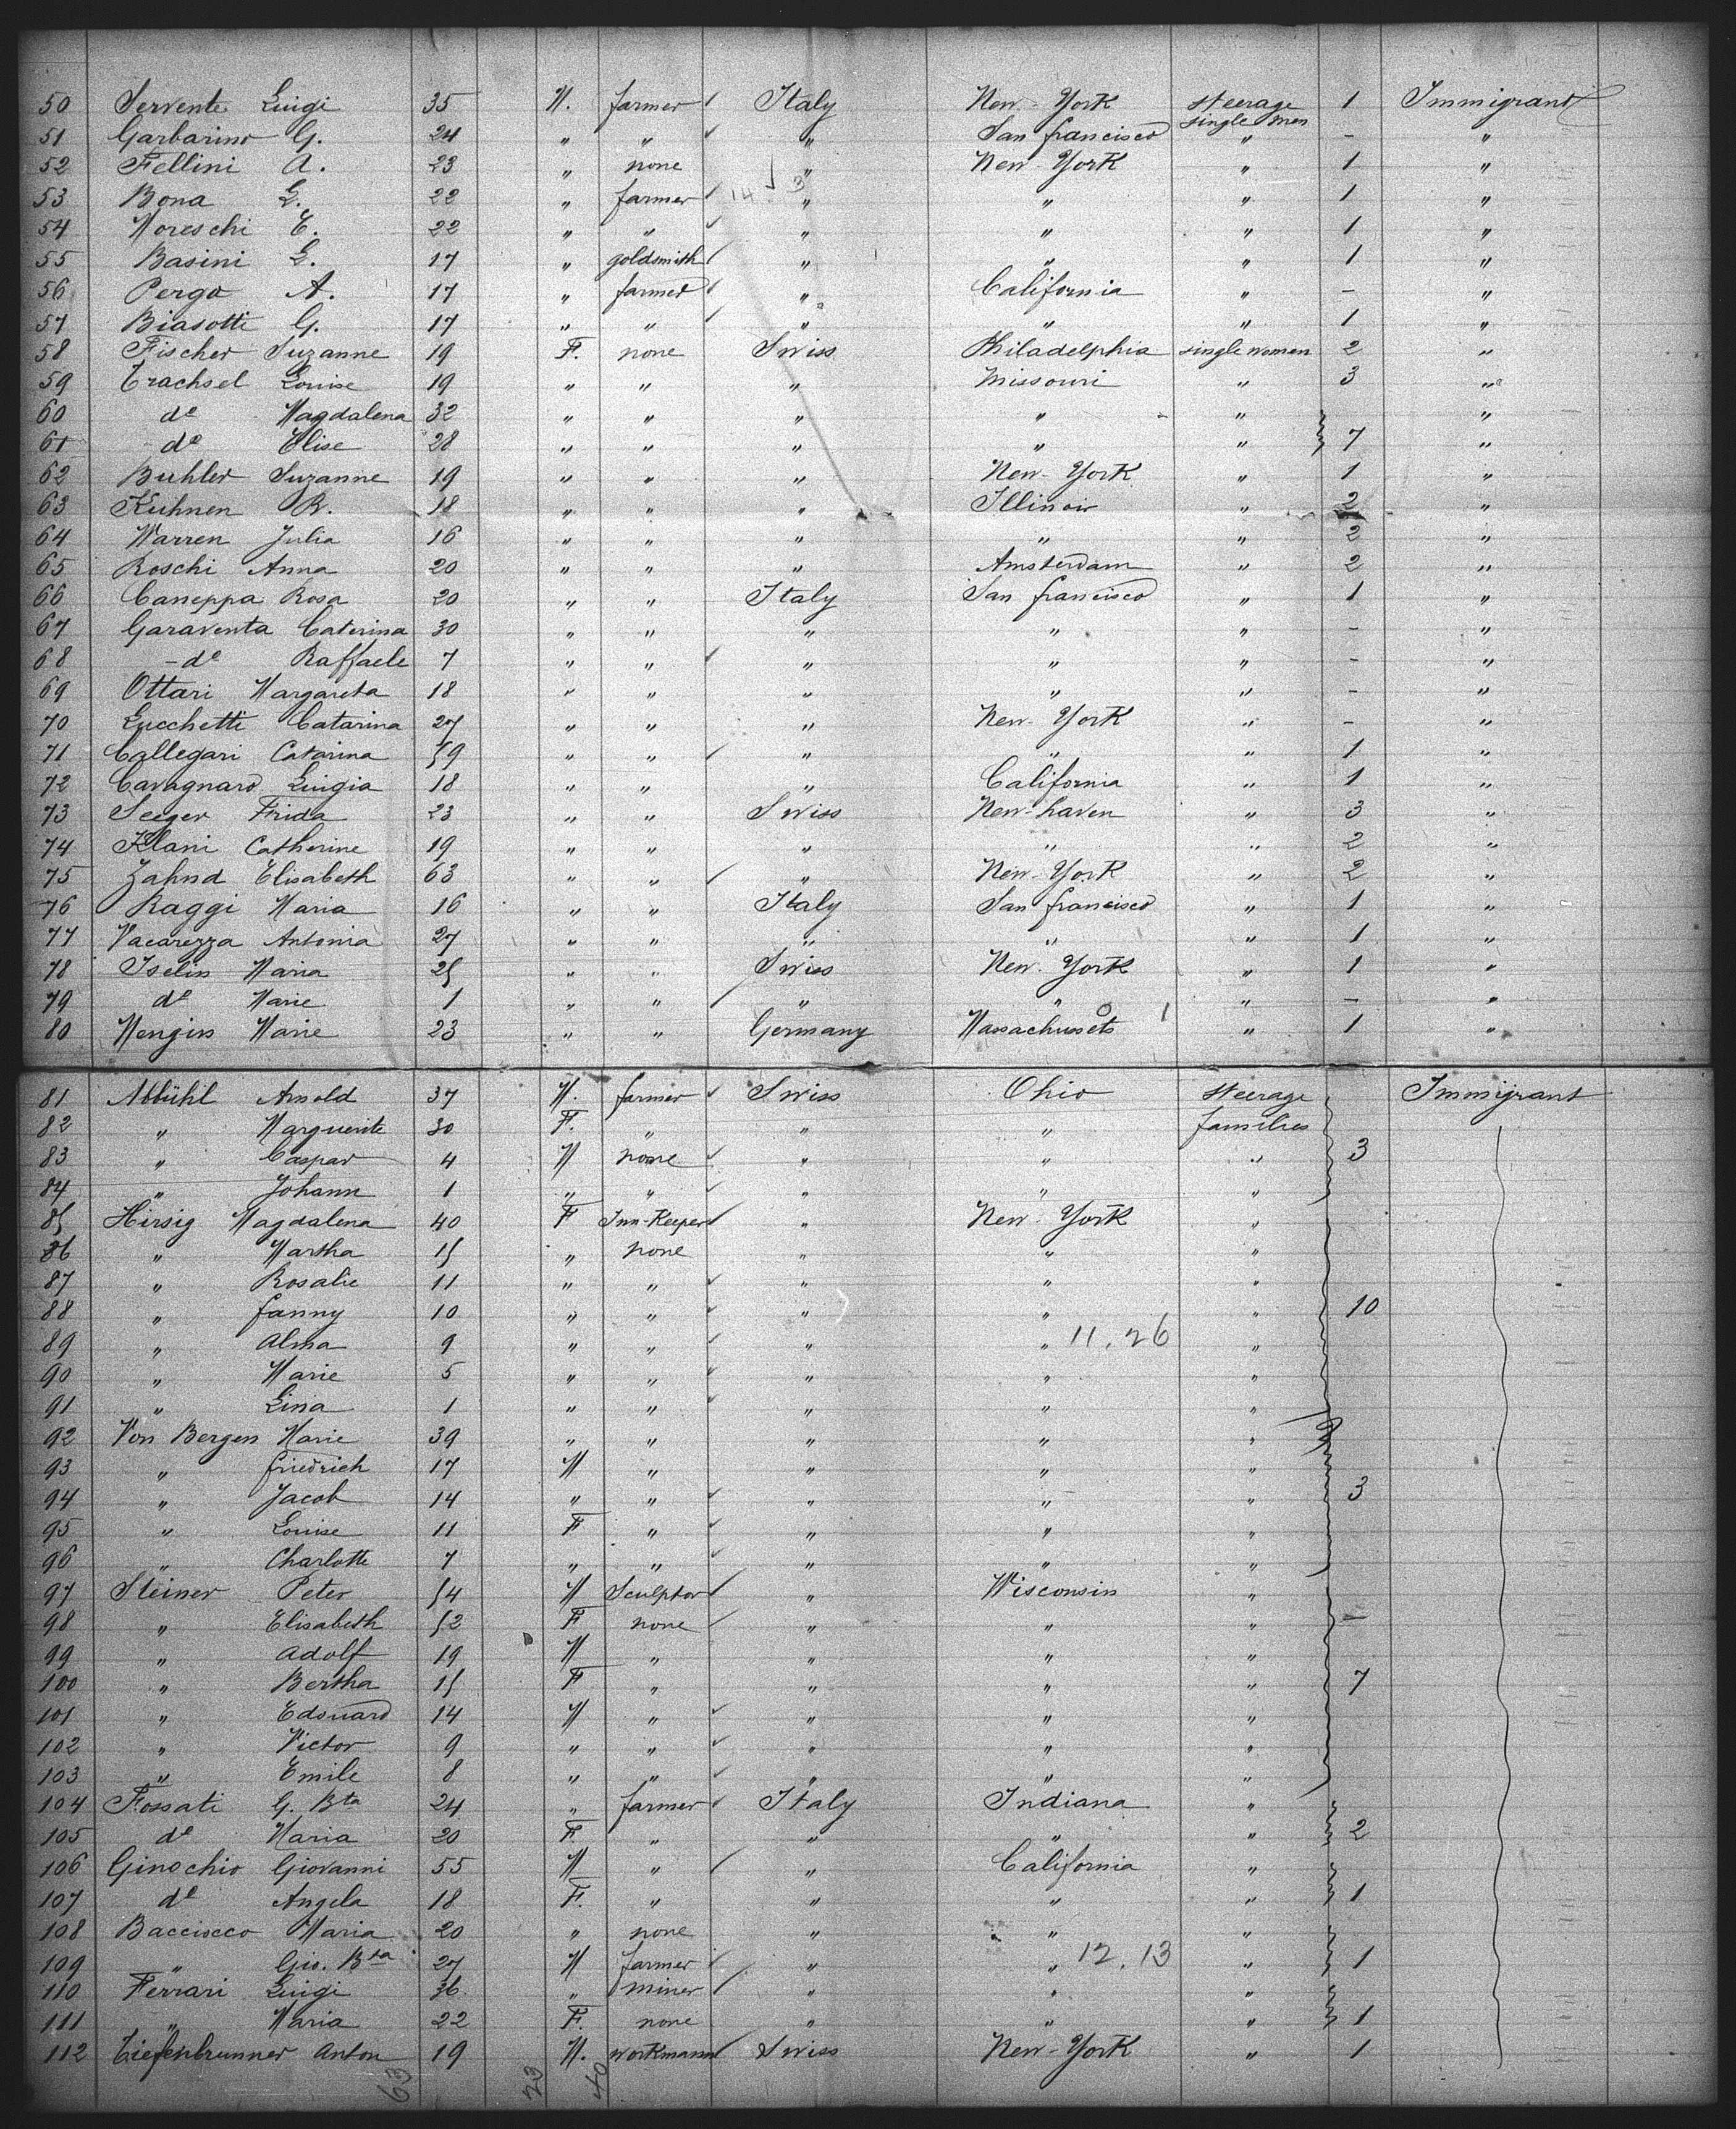 50 Servente Luigi 35 M. farmer Italy New-York steerage 1 Immigrant
single men
51 Garbarino G. 24 " " " San francisco " - "
52 Fellini A. 23 " none " New-York " 1 "
53 Bona L. 22 " farmer 14 3 " " " 1 "
54 Moreschi E. 22 " " " " " 1 "
55 Basini L. 17 " goldsmith " " " 1 "
56 Pergo A. 17 " farmer " California " - "
57 Biasotti G. 17 " " " " " 1 "
58 Fischer Suzanne 19 F. none Swiss Philadelphia single women 2 "
59 Trachsel Louise 19 " " " Missouri " 3 "
60 do Magdalena 32 " " " " " "
61 do Elise 28 " " " " " 7 "
62 Buhler Suzanne 19 " " " New-York " 1 "
63 Kuhnen R. 18 " " " Illinois " 2 "
64 Warren Julia 16 " " " " " 2 "
65 Roschi Anna 20 " " " Amsterdam " 2 "
66 Caneppa Rosa 20 " " Italy San francisco " 1 "
67 Garaventa Caterina 30 " " " " " - "
68 - do Raffaele 7 " " " " " - "
69 Ottari Margareta 18 " " " " " - "
70 Lucchetti Catarina 27 " " " New-York " - "
71 Callegari Catarina 59 " " " " " 1 "
72 Cavagnaro Luigia 18 " " " California " 1 "
73 Seeger Frida 23 " " Swiss New-haven " 3 "
74 Klani Catherine 19 " " " " " 2 "
75 Zahnd Elisabeth 63 " " " New-York " 2 "
76 Raggi Maria 16 " " Italy San francisco " 1 "
77 Vacarezza Antonia 27 " " " " " 1 "
78 Iselin Maria 25 " " Swiss New-York " 1 "
79 do Marie 1 " " " " " - "
80 Mengin Marie 23 " " Germany Massachussets " 1 "
81 Abbühl Arnold 37 M. farmer Swiss Ohio steerage Immigrant
82 " Marguerite 30 F. " " " families
83 " Caspar 4 M none " " " 3
84 " Johann 1 " " " " "
85 Hirsig Magdalena 40 F Inn-Keeper " New-York "
86 " Martha 15 " none " " "
87 " Rosalie 11 " " " " "
88 " fanny 10 " " " " " 10
89 " Alma 9 " " " " 11.26 "
90 " Marie 5 " " " " "
91 " Lina 1 " " " " "
92 Von Bergen Marie 39 " " " " "
93 " friedrich 17 M " " " "
94 " Jacob 14 " " " " " 3
95 " Louise 11 F " " " "
96 " Charlotte 7 " " " " "
97 Steiner Peter 54 M Sculptor " Wisconsin "
98 " Elisabeth 52 F none " " " -
99 " Adolf 19 M " " " "
100 " Bertha 15 F " " " " 7
101 " Edouard 14 M " " " "
102 " Victor 9 " " " " "
103 " Emile 8 " " " " "
104 Fossati G. Bta 24 " farmer Italy Indiana "
105 do Maria 20 F " " " " 2
106 Ginochio Giovanni 55 M " " California "
107 do Angela 18 F. " " " " 1
108 Maria 20 " none " " "
109 " Gio. Bta 27 M farmer " " 12.13 " 1
110 Ferrari Luigi 36 " miner " " "
111 " Maria 22 F. none " " " 1
112 Tiefenbrunner Anton 19 M. workmann Swiss New-York " 1
63 23 40